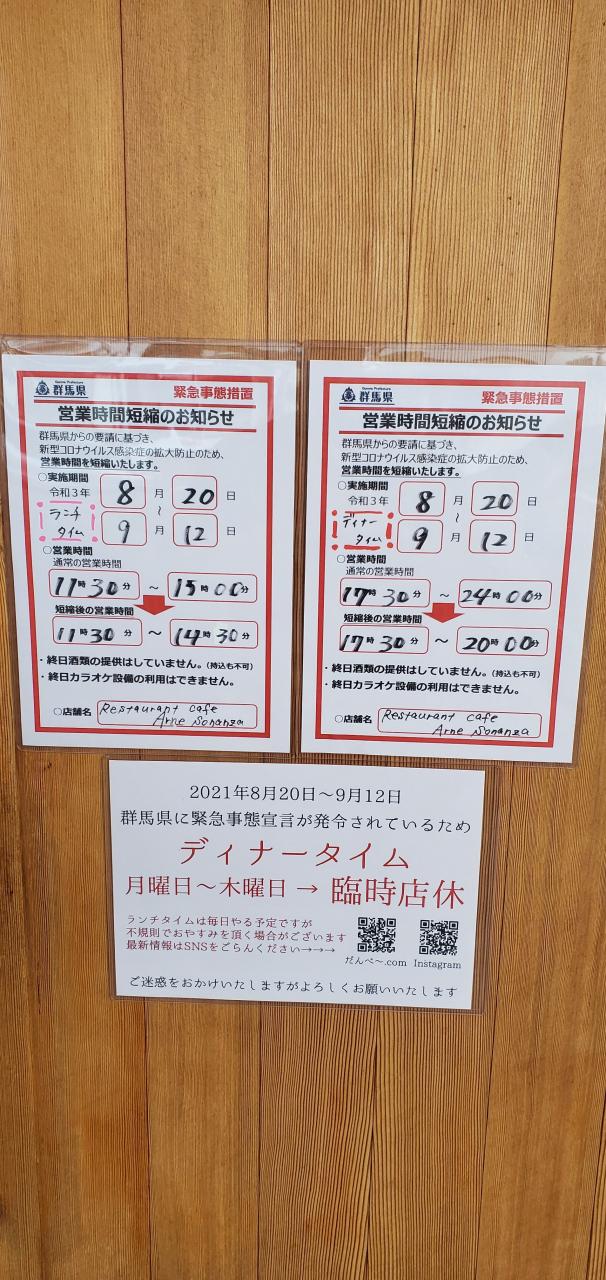 Gunma Prefecture
群馬県 緊急事態措置
営業時間短縮のお知らせ
群馬県からの要請に基づき、
新型コロナウイルス感染症の拡大防止のため、
営業時間を短縮いたします。
○実施期間
令和3年 8月20日
～
ランチタイム 9月12日
○営業時間
通常の営業時間
11時30分～15時00分
短縮後の営業時間
11時30分～14時30分
・終日酒類の提供はしていません。(持込も不可)
・終日カラオケ設備の利用はできません。
○店舗名 Restaurant cafe
Arne Bonanza
Gunma Prefecture
群馬県 緊急事態措置
営業時間短縮のお知らせ
群馬県からの要請に基づき、
新型コロナウイルス感染症の拡大防止のため、
営業時間を短縮いたします。
○実施期間
令和3年 8月20日
～
ディナータイム 9月12日
○営業時間
通常の営業時間
17時30分～24時00分
短縮後の営業時間
17時30分～20時00分
・終日酒類の提供はしていません。(持込も不可)
・終日カラオケ設備の利用はできません。
○店舗名 Restaurant cafe
Arne Bonanza
2021年8月20日～9月12日
群馬県に緊急事態宣言が発令されているため
ディナータイム
月曜日～木曜日→臨時店休
ランチタイムは毎日やる予定ですが
不規則でおやすみを頂く場合がございます
最新情報はSNSをごらんください→→→
だんべ～.com Instagram
ご迷惑をおかけいたしますがよろしくお願いいたします